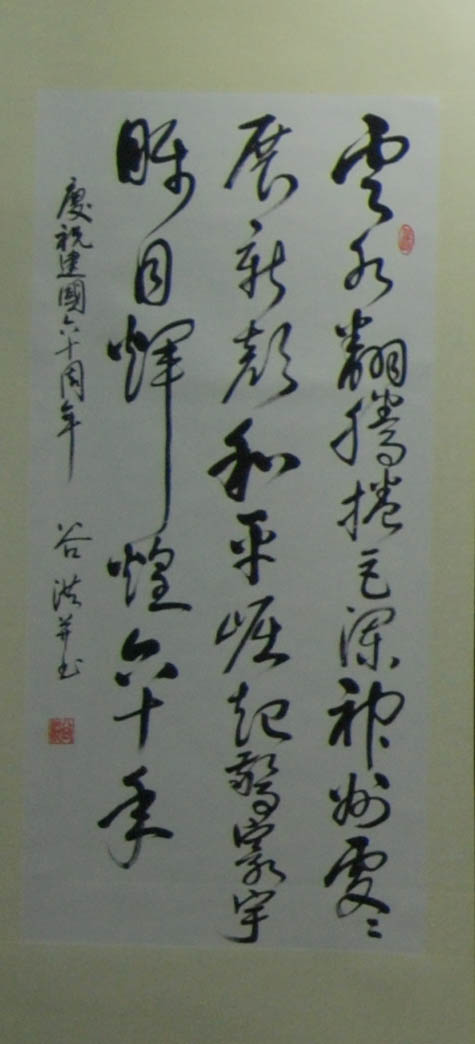 雲水翻騰捲巨瀾神州處々
展新顏和平崛起驚寰宇
矚目輝煌六十年
慶祝建國六十周年 谷洪并书